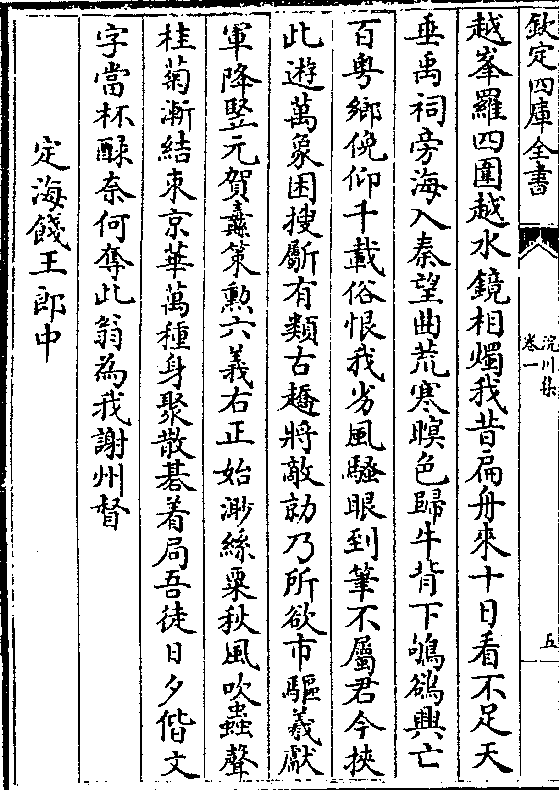 欽定四庫全書
浣川集
卷一
五
越峯羅四圍越水鏡相燭我昔扁舟來十日看不足天
垂禹祠旁海入秦望曲荒寒暝色歸牛背下鴝鵒興亡
百粤鄉俛仰千載俗恨我劣風騷眼到筆不屬君今挾
此遊萬象困搜斸有類古趫將敵勍乃所欲市驅羲獻
軍降竪元賀纛策勲六義右正始渺絲粟秋風吹蟲聲
桂菊漸結束京華萬種身聚散棊着局吾徒日夕偕文
字當杯醁奈何奪此翁為我謝州督
定海餞王郎中